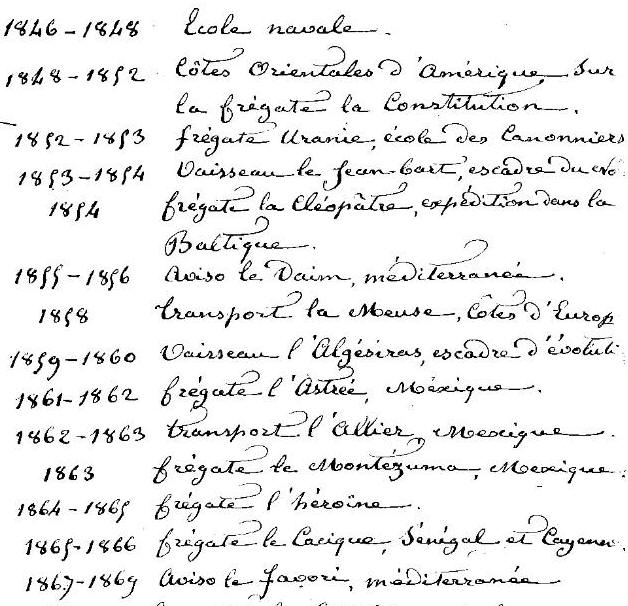 1846-1848 Ecole navale.
1848-1852 Côtes Orientales d'Amérique, Sur
la frégate la Constitution.
1852-1853 frégate Uranie, école des Canonniers
1853-1854 Vaisseau le Jean-bart, escadre du
1854 frégate la Cléopâtre, expédition dans la
Baltique.
1855-1856 Aviso le Daim, méditerranée.
1858 transport la Meuse, Côtes d'Europ
1859-1860 Vaisseau l'Algésiras, escadre d'évoluti
1861-1862 frégate l'Astrée, Méxique.
1862-1863 transport l'Allier, Mexique.
1863 frégate le Montézuma, Mexique.
1864-1865 frégate l'héroïne.
1865-1866 frégate le Cacique, Sénégal et Cayenn
1867-1869 Aviso le favori, méditerranée